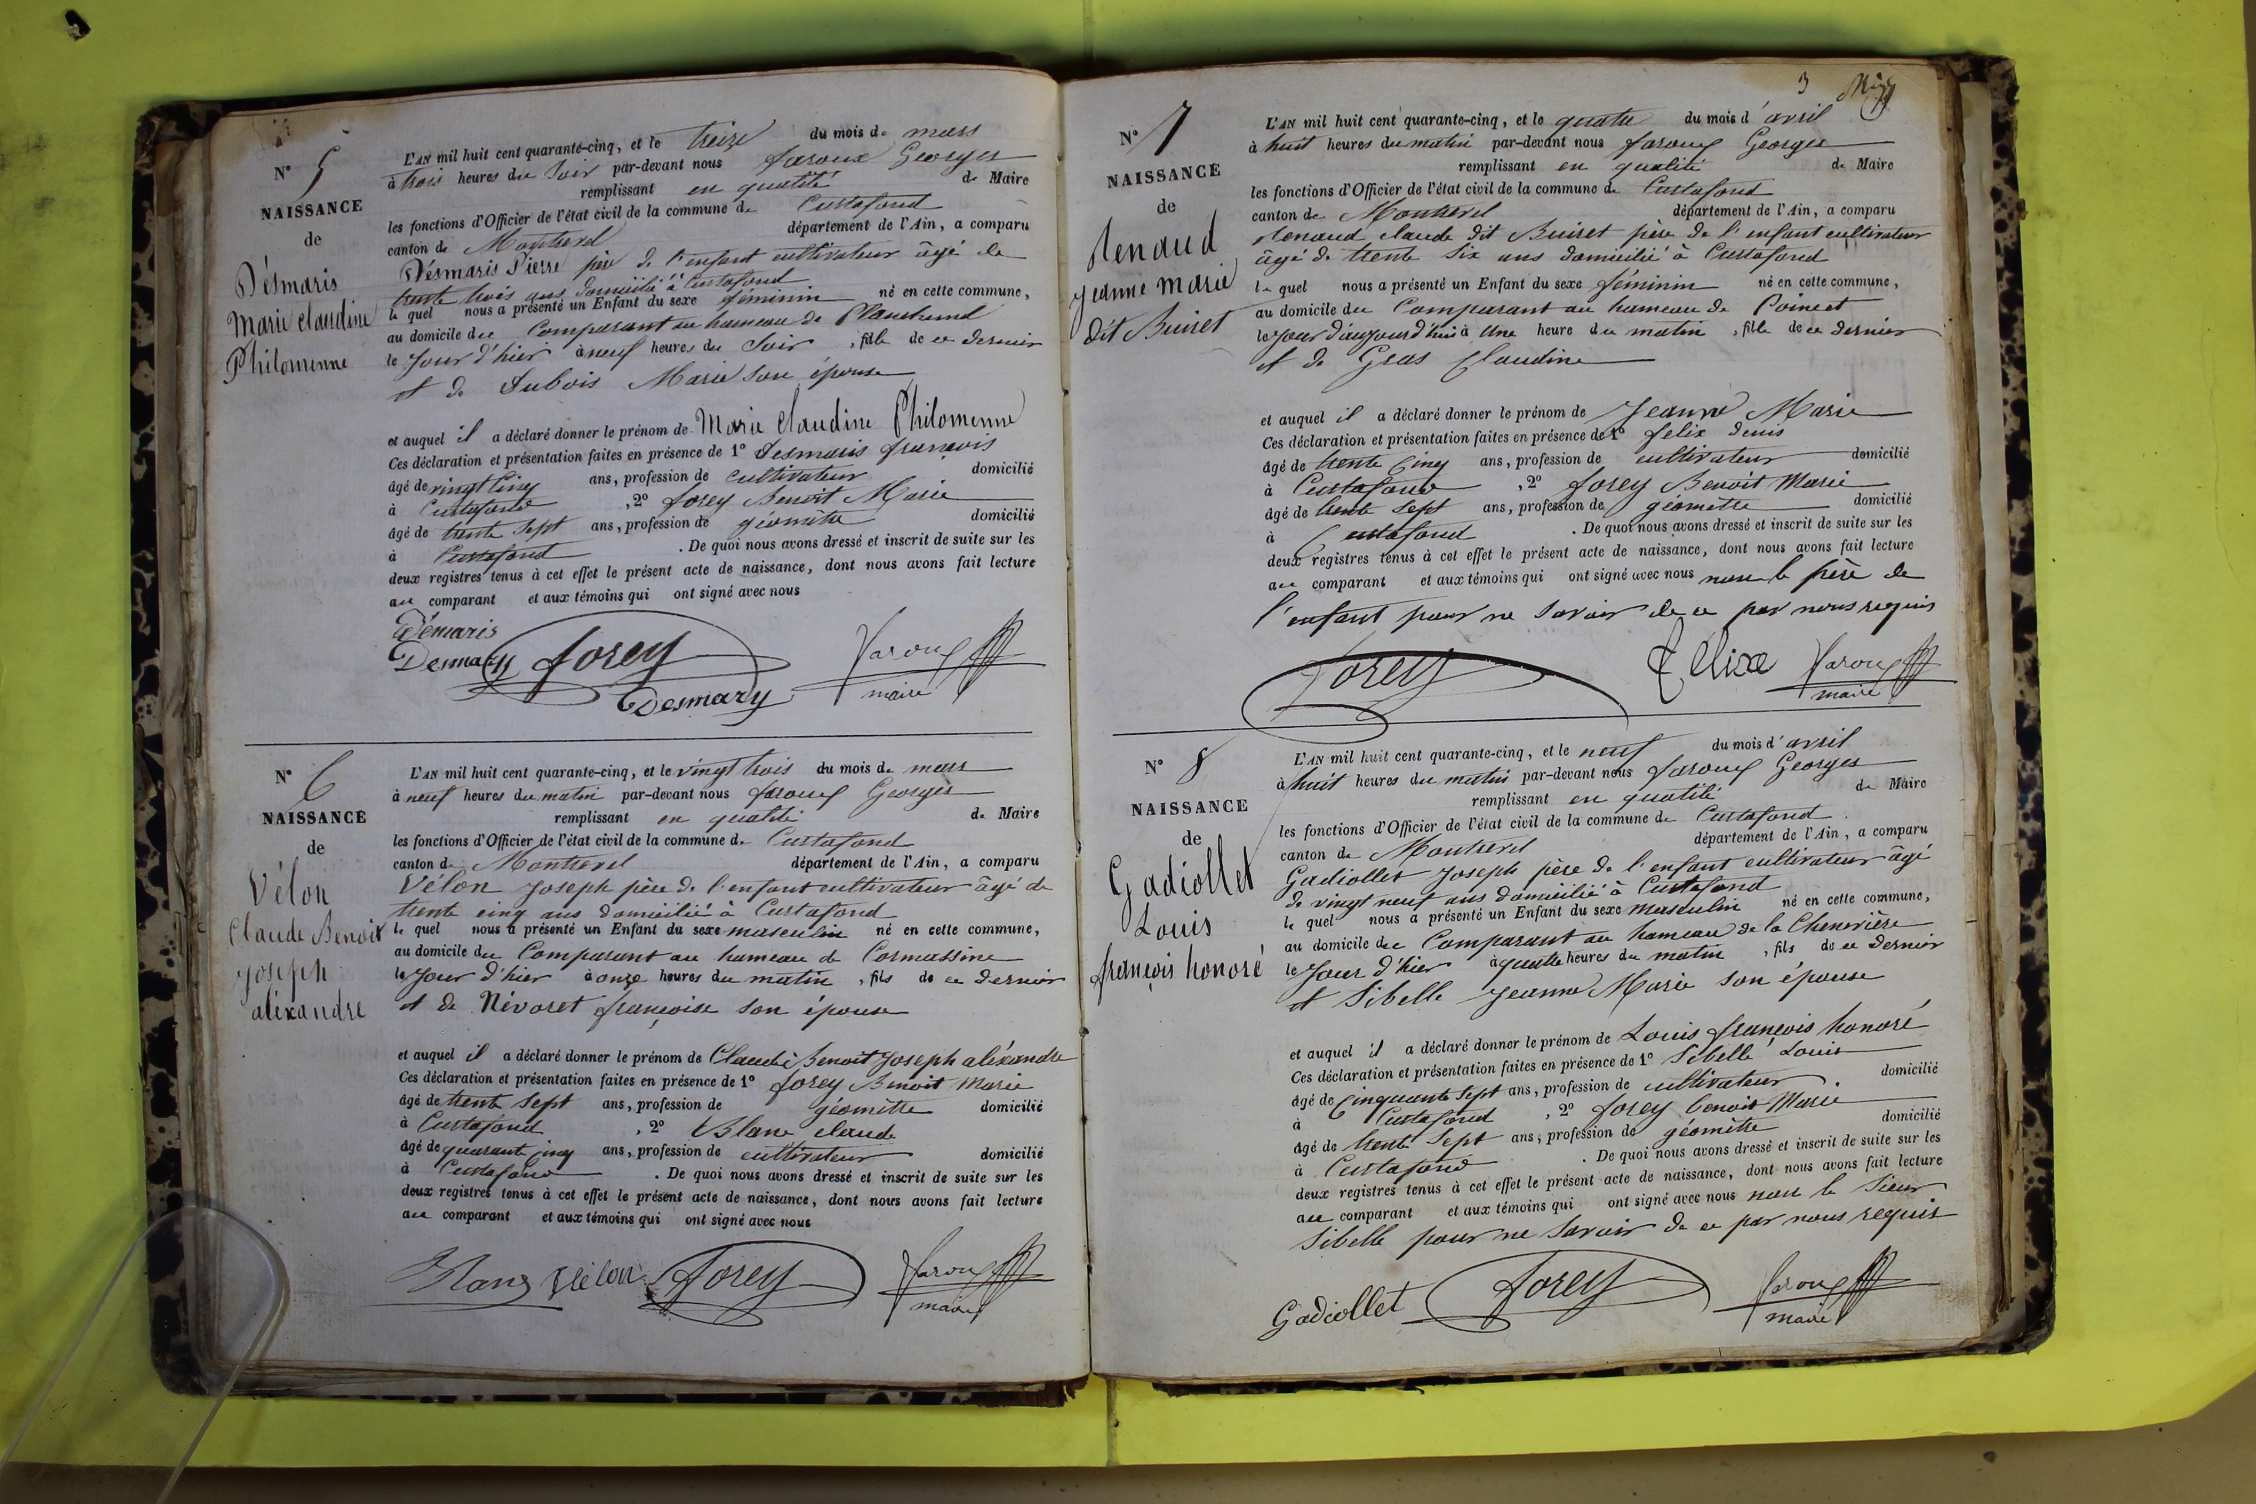 N° 5
NAISSANCE
de
Désmaris
Marie claudine
Philomenne
L'AN mil huit cent quarante-cinq, et le treize du mois de mars
à trois heures du soir par-devant nous faroux Georges
remplissant en qualité de Maire
les fonctions d'Officier de l'état civil de la commune de Curtafond
canton de Montrevel département de l'Ain, a comparu
Désmaris Pierre père de l'enfant cultivateur âgé de
trente trois ans domicilié à Curtafond
le quel nous a présenté un Enfant du sexe féminin né en cette commune,
au domicile du Comparant au hameau de
le jour d'hier à neuf heures du soir, fille de ce dernier
et de Dubois Marie son épouse
et auquel il a déclaré donner le prénom de Marie claudine Philomenne
Ces déclaration et présentation faites en présence de 1° Desmaris françois
âgé de vingt cinq ans, profession de cultivateur domicilié
à Curtafond, 2° forey Benoit Marie
âgé de trente sept ans, profession de géomètre domicilié
à Curtafond. De quoi nous avons dressé et inscrit de suite sur les
deux registres tenus à cet effet le présent acte de naissance, dont nous avons fait lecture
au comparant et aux témoins qui ont signé avec nous
Démaris
Desmary forey faroux
Desmary maire
N° 6
NAISSANCE
de
Vélon
Claude Benoit
joseph
aléxandre
L'AN mil huit cent quarante-cinq, et le vingt trois du mois de mars
à neuf heures du matin par-devant nous faroux Georges
remplissant en qualité de Maire
les fonctions d'Officier de l'état civil de la commune de Curtafond
canton de Montrevel département de l'Ain, a comparu
Vélon joseph père de l'enfant cultivateur âgé de
trente cinq ans domicilié à Curtafond
le quel nous a présenté un Enfant du sexe masculin né en cette commune,
au domicile du Comparant au hameau de Cormassine
le jour d'hier à onze heures du matin, fils de ce dernier
et de Névoret françoise son épouse
et auquel il a déclaré donner le prénom de Claude Benoit joseph aléxandre
Ces déclaration et présentation faites en présence de 1° forey Benoit Marie
âgé de trente sept ans, profession de géomètre domicilié
à Curtafond, 2° Blanc claude
âgé de quarante cinq ans, profession de cultivateur domicilié
à Curtafond. De quoi nous avons dressé et inscrit de suite sur les
deux registres tenus à cet effet le présent acte de naissance, dont nous avons fait lecture
au comparant et aux témoins qui ont signé avec nous
Blanc Vélon forey faroux
maire
3
N° 7
NAISSANCE
de
Renaud
jeanne marie
dit Buiret
L'AN mil huit cent quarante-cinq, et le quatre du mois d'avril
à huit heures du matin par-devant nous faroux Georges
remplissant en qualité de Maire
les fonctions d'Officier de l'état civil de la commune de Curtafond
canton de Montrevel département de l'Ain, a comparu
Renaud claude dit Buiret père de l'enfant cultivateur
âgé de trente six ans domicilié à Curtafond
le quel nous a présenté un Enfant du sexe féminin né en cette commune,
au domicile du Comparant au hameau de Poinet
le jour d'aujourd'hui à une heure du matin, fille de ce dernier
et de Gras Claudine
et auquel il a déclaré donner le prénom de Jeanne Marie
Ces déclaration et présentation faites en présence de 1° felix denis
âgé de trente cinq ans, profession de cultivateur domicilié
à Curtafond, 2° forey Benoit Marie
âgé de trente sept ans, profession de géomètre domicilié
à Curtafond. De quoi nous avons dressé et inscrit de suite sur les
deux registres tenus à cet effet le présent acte de naissance, dont nous avons fait lecture
au comparant et aux témoins qui ont signé avec nous non le père de
l'enfant pour ne savoir de ce par nous requis
forey félix faroux
maire
N° 8
NAISSANCE
de
Gadiollet
Louis
françois honoré
L'AN mil huit cent quarante-cinq, et le neuf du mois d'avril
à huit heures du matin par-devant nous faroux Georges
remplissant en qualité de Maire
les fonctions d'Officier de l'état civil de la commune de Curtafond
canton de Montrevel département de l'Ain, a comparu
Gadiollet Joseph père de l'enfant cultivateur âgé
de vingt neuf ans domicilié à Curtafond
le quel nous a présenté un Enfant du sexe masculin né en cette commune,
au domicile du Comparant au hameau de la Chenevière
le jour d'hier à quatre heures du matin, fils de ce dernier
et Sibelle Jeanne Marie son épouse
et auquel il a déclaré donner le prénom de Louis françois honoré
Ces déclaration et présentation faites en présence de 1° Sibelle Louis
âgé de Cinquante sept ans, profession de cultivateur domicilié
à Curtafond, 2° forey benoit Marie
âgé de trente sept ans, profession de géomètre domicilié
à Curtafond. De quoi nous avons dressé et inscrit de suite sur les
deux registres tenus à cet effet le présent acte de naissance, dont nous avons fait lecture
au comparant et aux témoins qui ont signé avec nous non le sieur
Sibelle pour ne savoir de ce par nous requis
Gadiollet forey faroux
maire